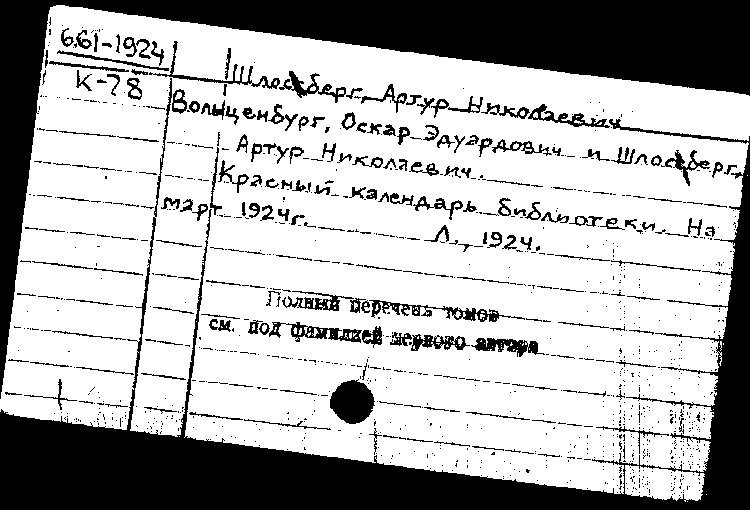 661-1924
К-78
Шлосберг, Артур Николаевич
Вольценбург, Оскар Эдуардович и Шлосберг,
Артур Николаевич.
Красный календарь библиотеки. На
март 1924г. Л., 1924.
Полный перечень томов
см. под фамилией первого автора